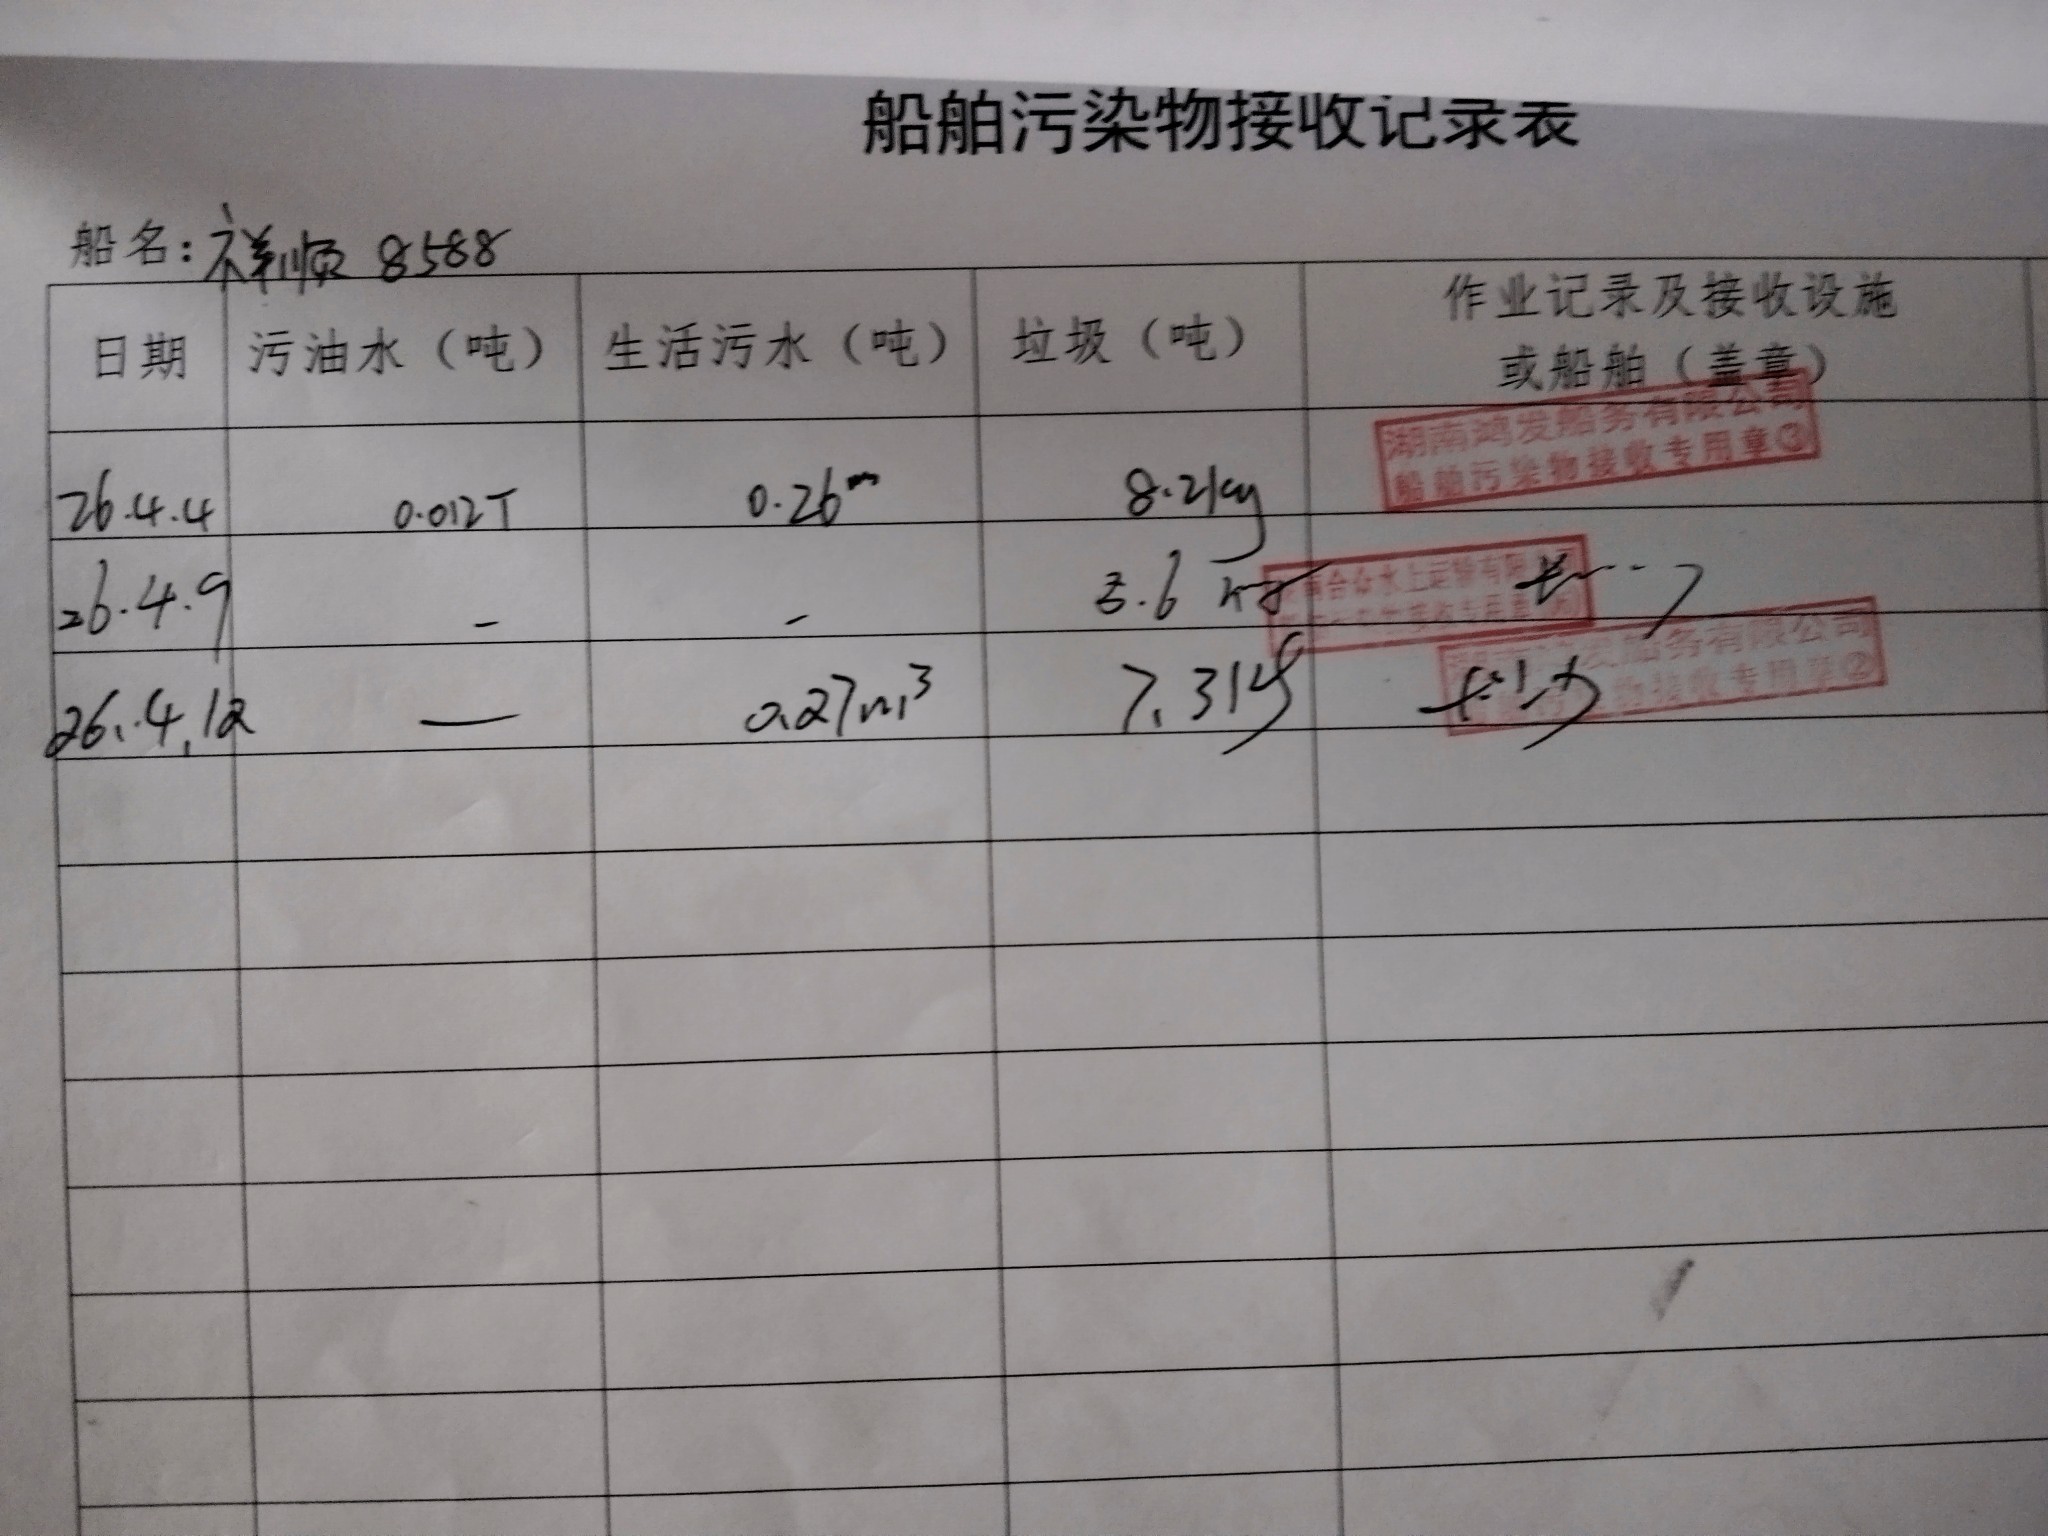 船舶污染物接收记录表
船名: 祥顺 8588
日期 污油水（吨） 生活污水（吨） 垃圾（吨） 作业记录及接收设施
或船舶（盖章）
湖南鸿发船务有限公司
船舶污染物接收专用章③
26.4.4 0.012T 0.26m 8.2kg
26.4.9 - - 3.6 kg
南合众水上运输有限
接收专用章
26.4.12 — 0.27m³ 7.3kg
发船务有限公司
物接收专用章②